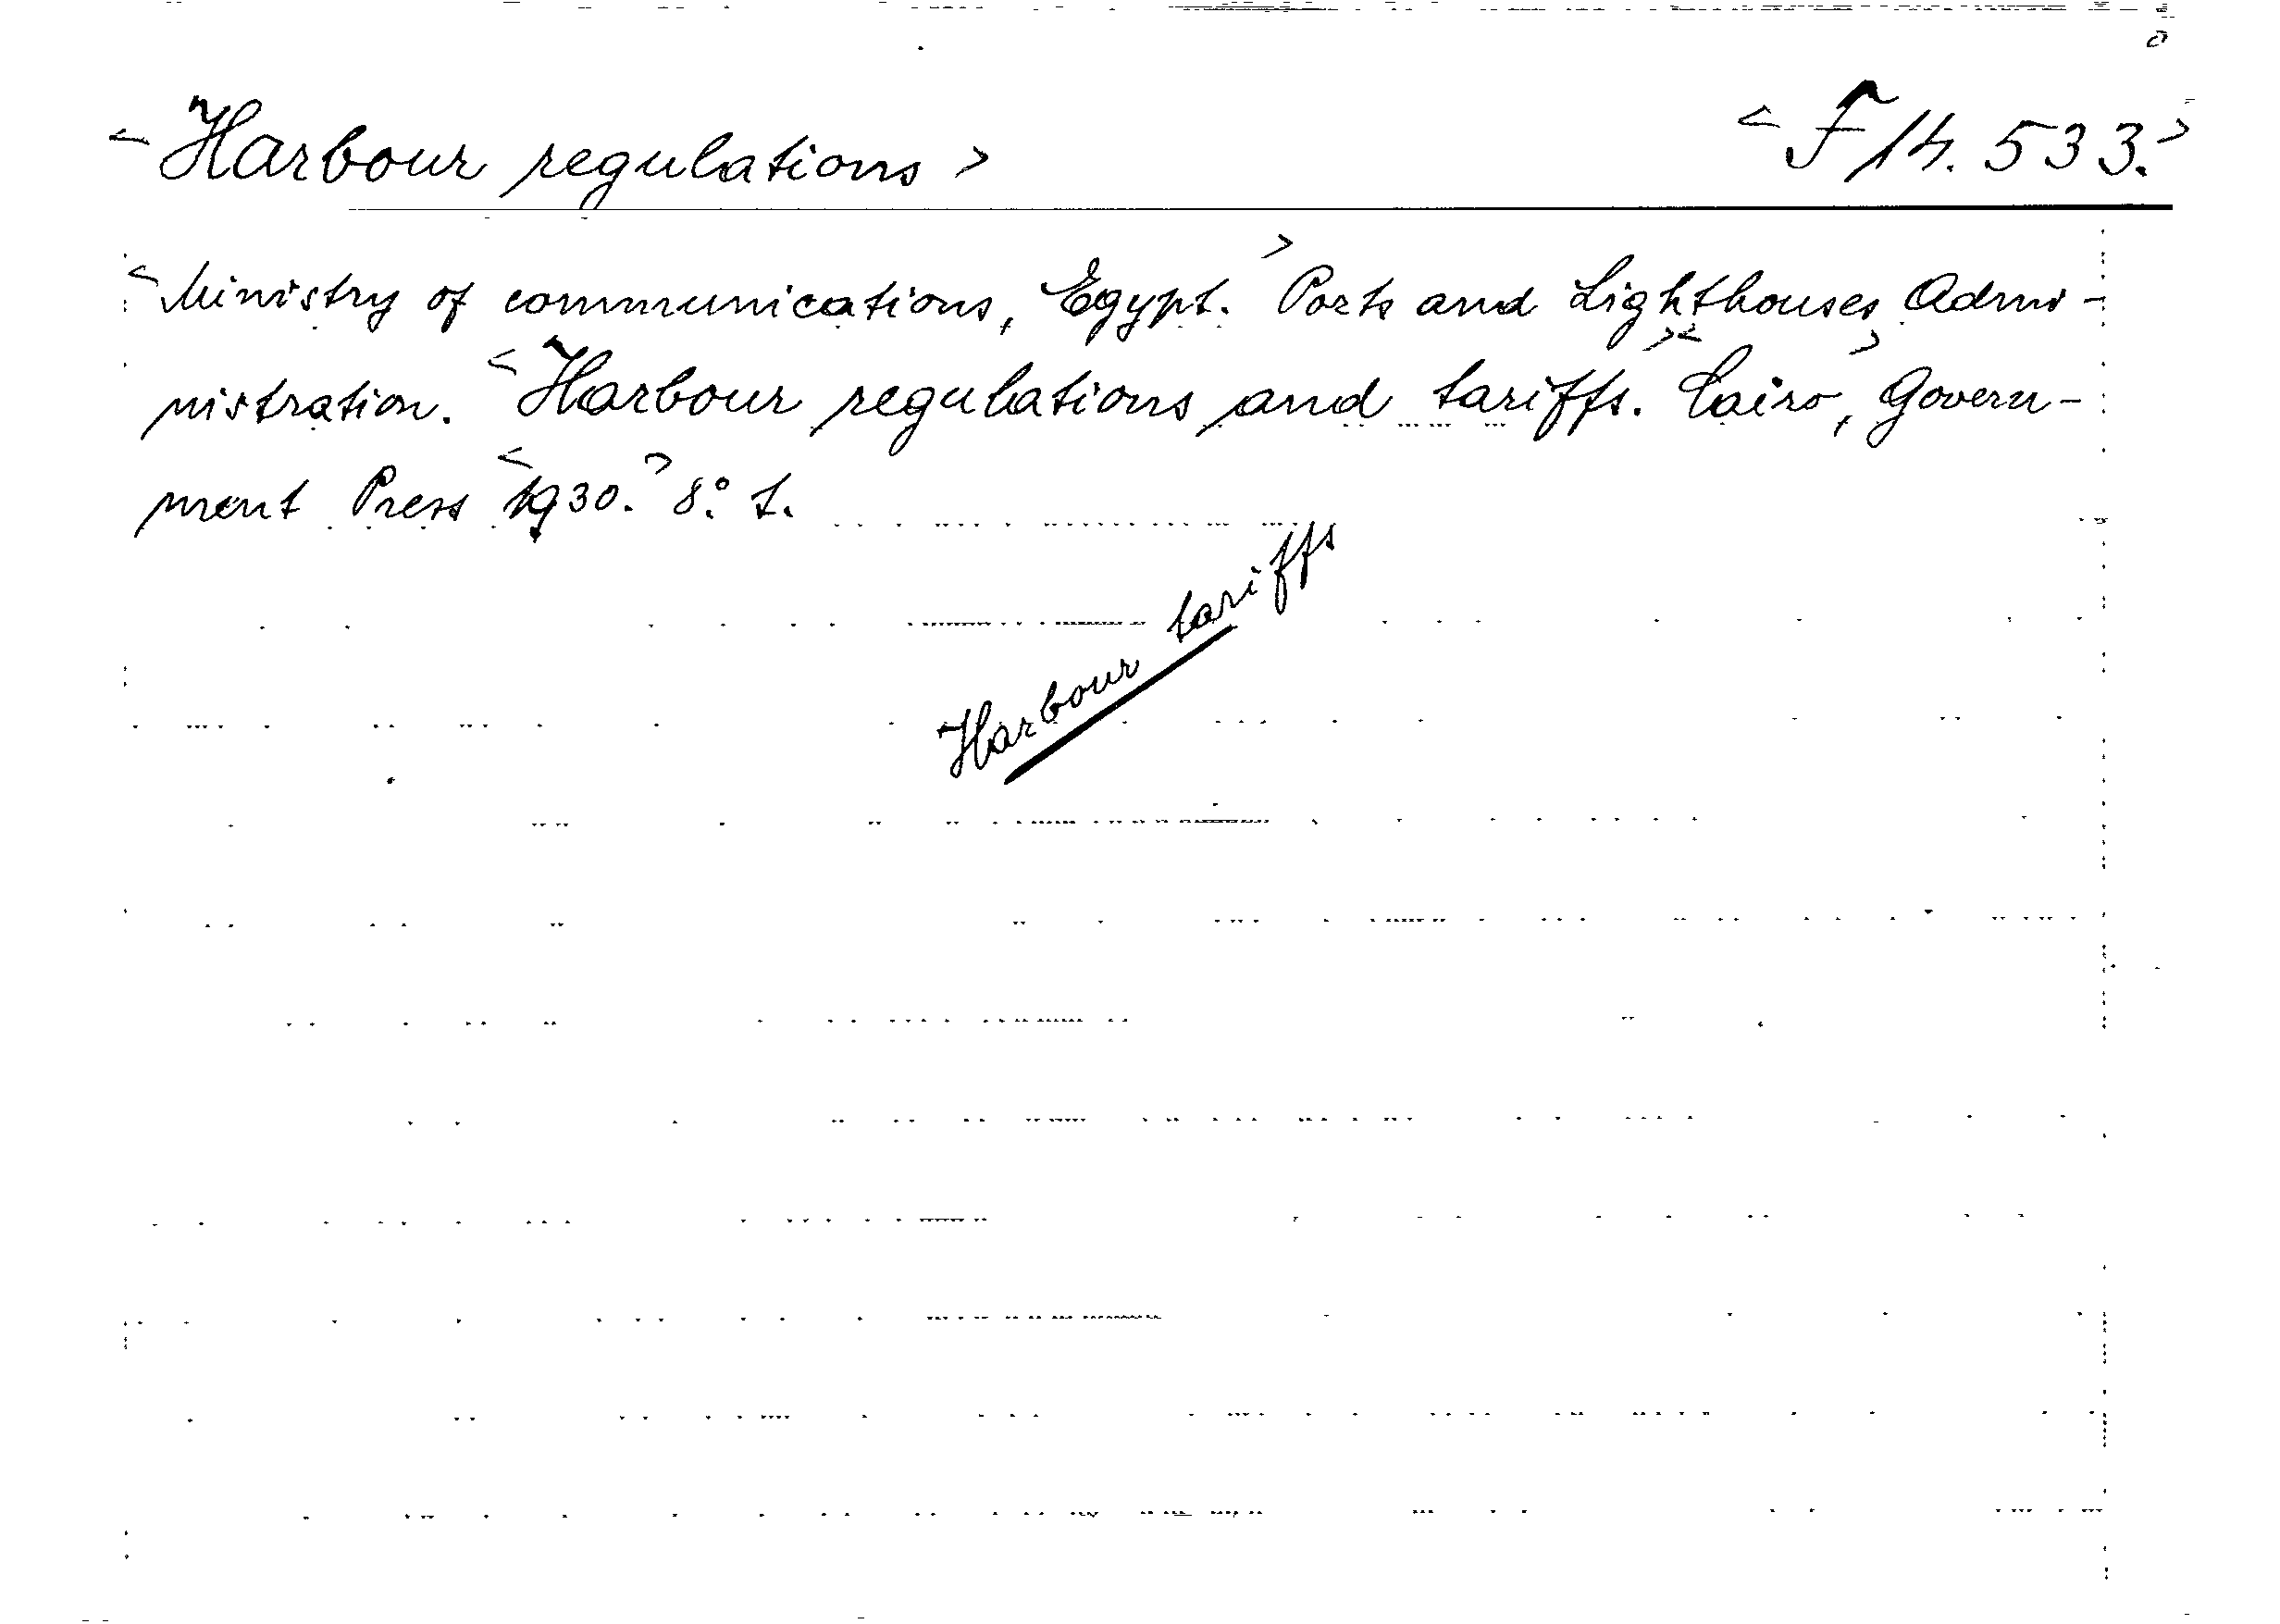 <Harbour regulations> <F 14.533.>
<Ministry of communications, Egypt.> Ports and Lighthouses Admi-
nistration. <Harbour regulations and tariffs.> <Cairo,> Govern-
ment Press <1930.> 8° 1.
Harbour tariffs